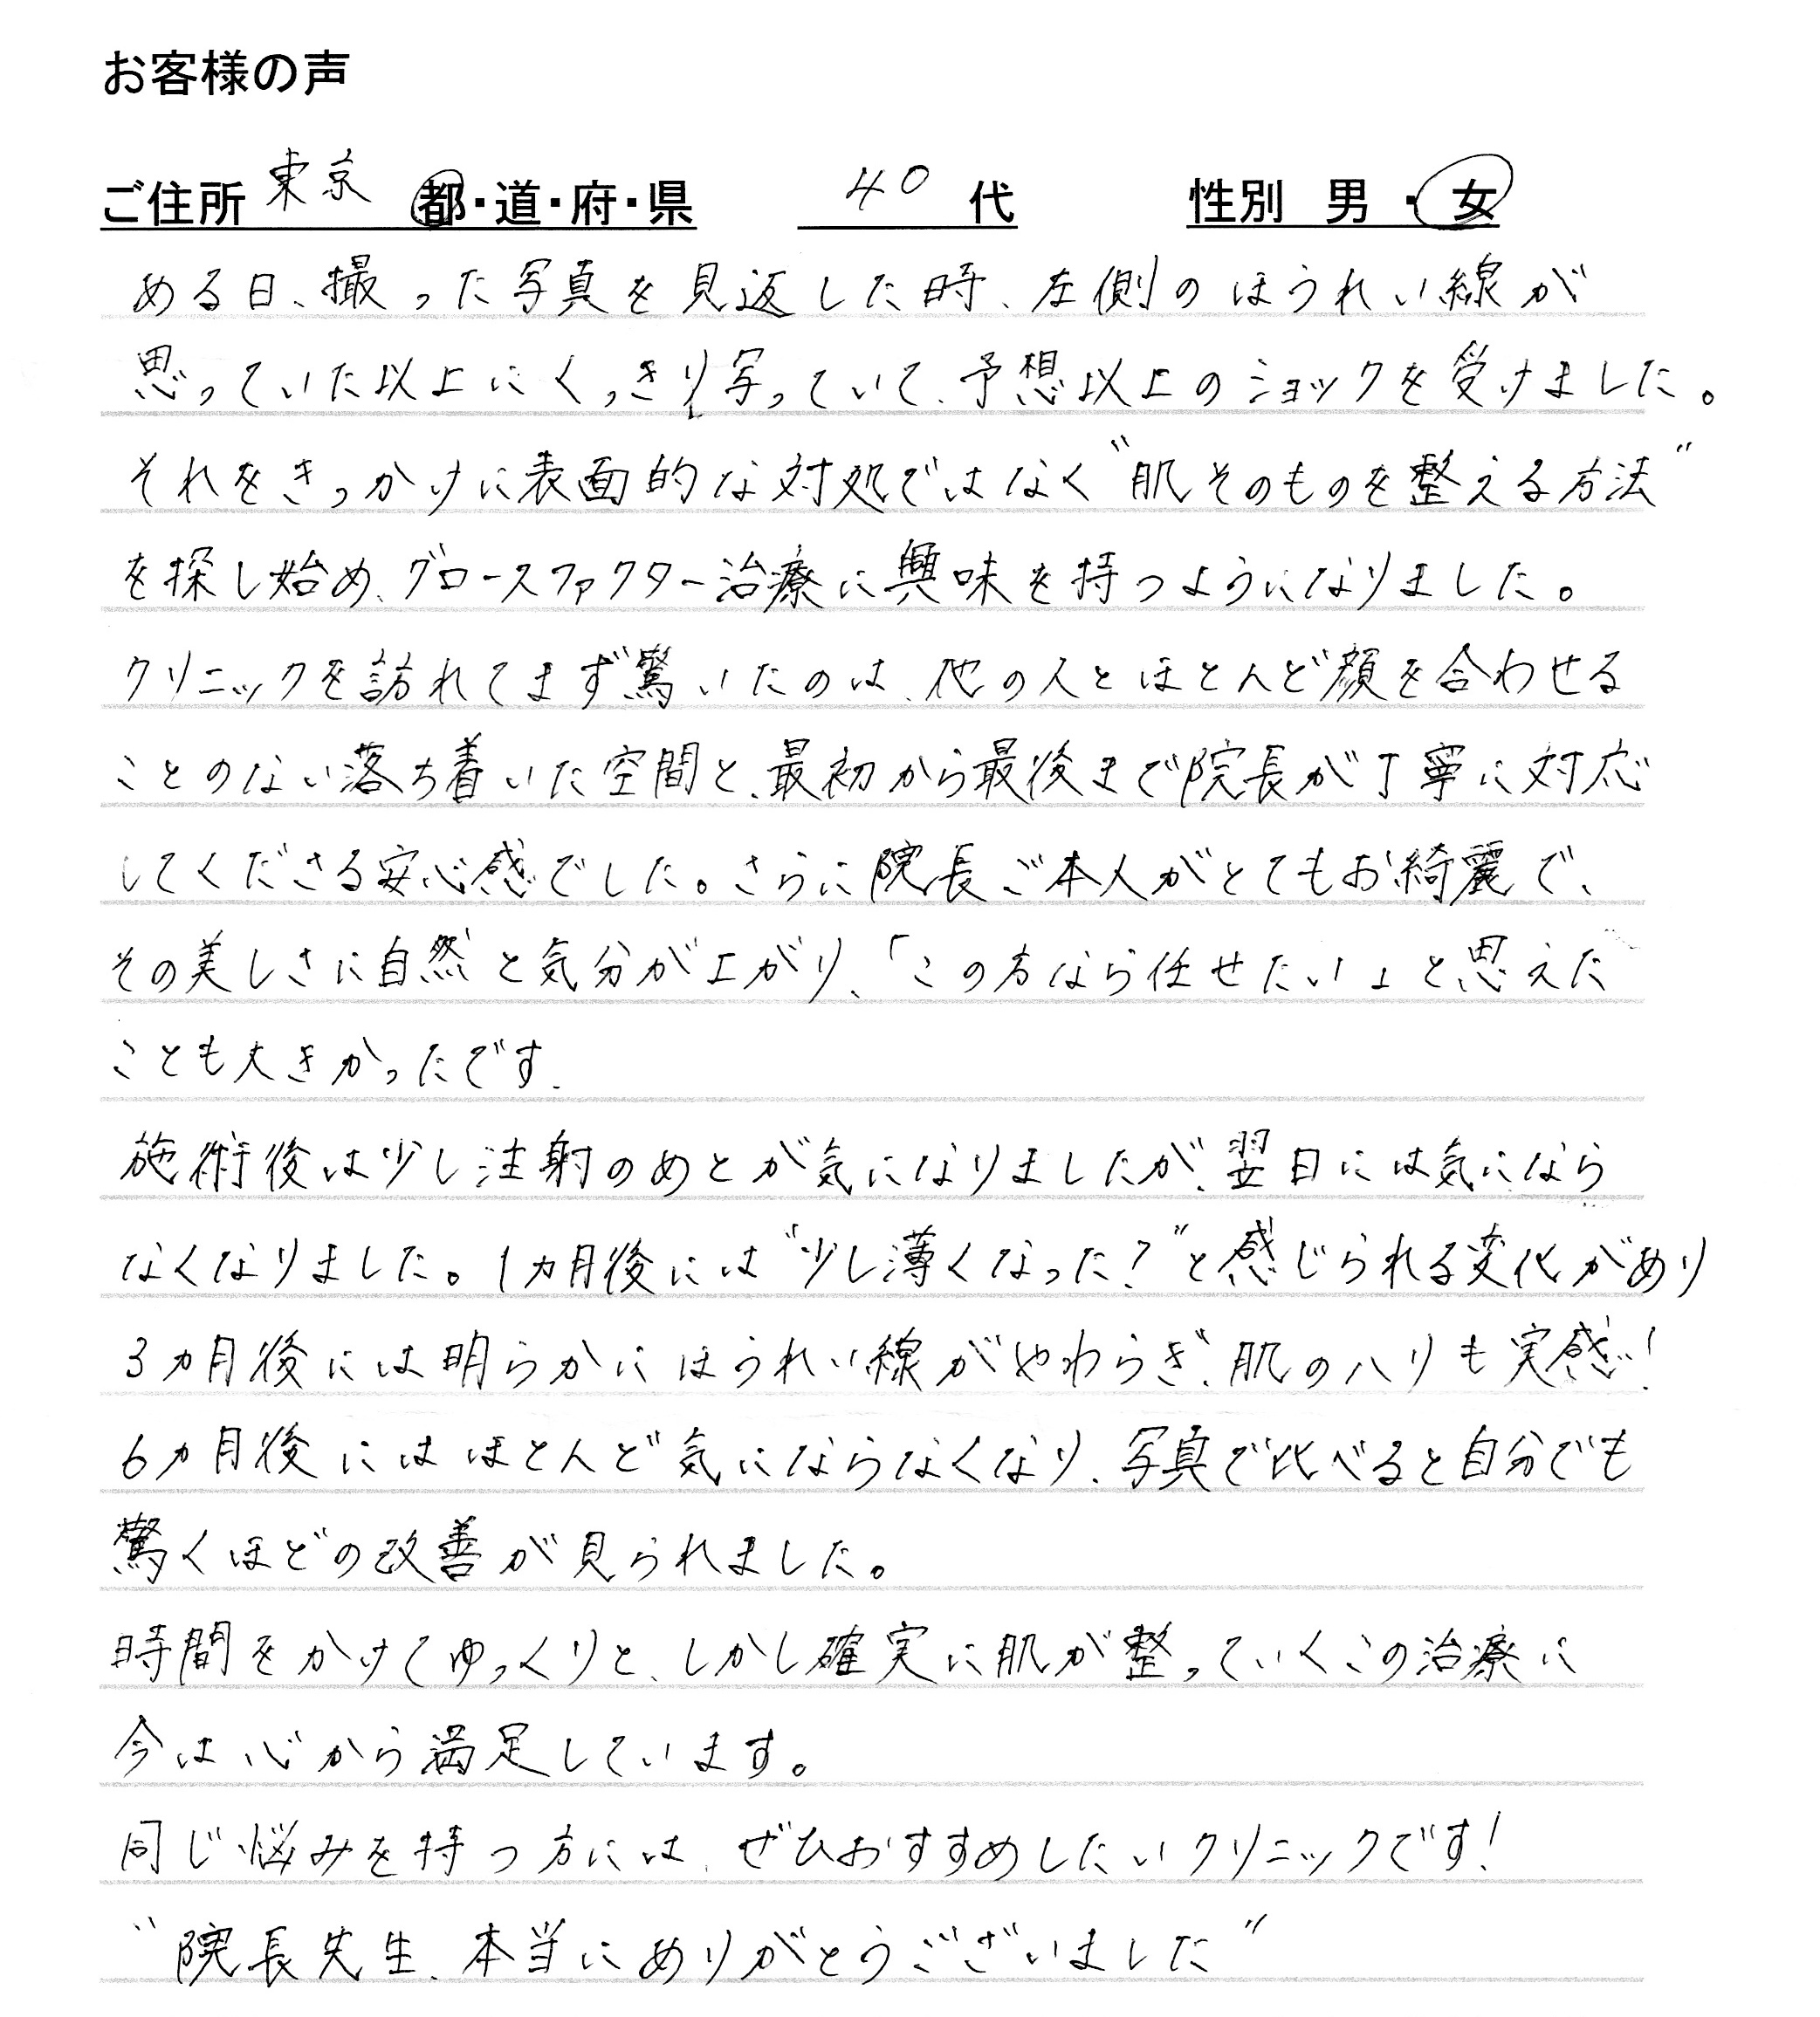 お客様の声
ご住所 東京 都・道・府・県 40 代 性別 男・女
ある日、撮った写真を見返した時、左側のほうれい線が
思っていた以上にくっきり写っていて、予想以上のショックを受けました。
それをきっかけに表面的な対処ではなく"肌そのものを整える方法"
を探し始め、グロースファクター治療に興味を持つようになりました。
クリニックを訪れてまず驚いたのは、他の人とほとんど顔を合わせる
ことのない落ち着いた空間と、最初から最後まで院長が丁寧に対応
してくださる安心感でした。さらに院長ご本人がとてもお綺麗で、
その美しさに自然と気分が上がり、「この方なら任せたい」と思えた
ことも大きかったです.
施術後は少し注射のあとが気になりましたが、翌日には気になら
なくなりました。1カ月後には"少し薄くなった?"と感じられる変化があり
3カ月後には明らかにほうれい線がやわらぎ、肌のハリも実感!
6カ月後にはほとんど気にならなくなり、写真で比べると自分でも
驚くほどの改善が見られました。
時間をかけてゆっくりと、しかし確実に肌が整っていくこの治療に
今は心から満足しています。
同じ悩みを持つ方には、ぜひおすすめしたいクリニックです!
"院長先生、本当にありがとうございました"